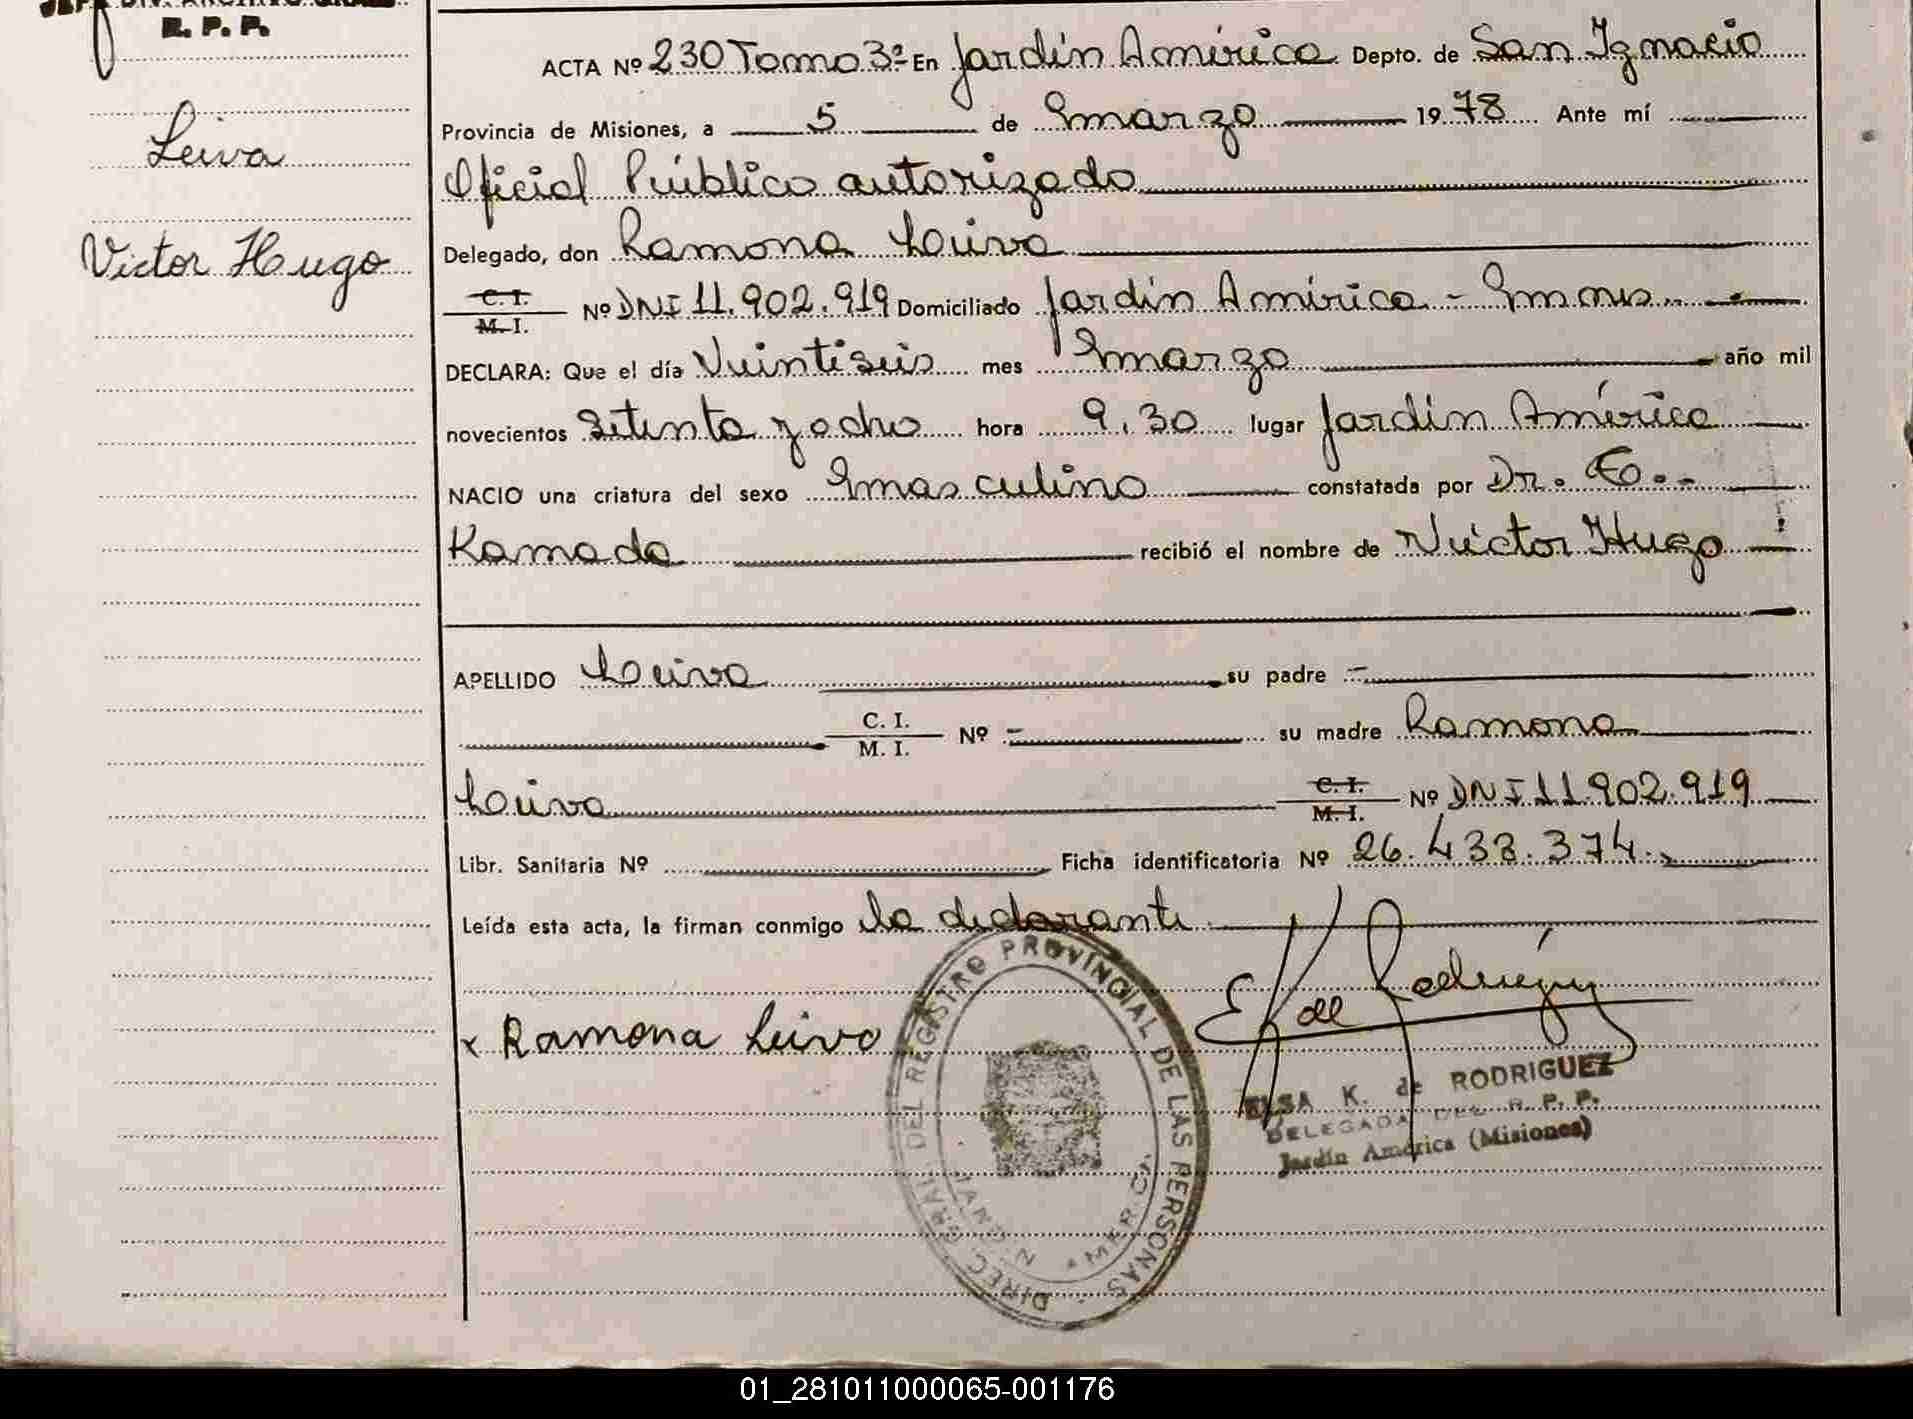 R. P. P.
ACTA Nº 230 Tomo 3º En Jardín América Depto. de San Ignacio
Provincia de Misiones, a 5 de marzo 1978 Ante mí
Oficial Público autorizado
Delegado, don Ramona Leiva
C. I. / M. I. Nº DNI 11.902.919 Domiciliado Jardín América - Mnes.
DECLARA: Que el día Veintiseis mes marzo año mil
novecientos Setenta y ocho hora 9,30 lugar Jardín América
NACIO una criatura del sexo masculino constatada por Dr. E. -
Kamada recibió el nombre de Victor Hugo
APELLIDO Leiva su padre -
C. I. / M. I. Nº - su madre Ramona
Leiva C. I. / M. I. Nº DNI 11.902.919
Libr. Sanitaria Nº Ficha identificatoria Nº 26.433.374.
Leída esta acta, la firman conmigo la declarante
Leiva
Victor Hugo
x Ramona Leiva
E K de Rodríguez
ELSA K. de RODRIGUEZ
DELEGADA DEL R. P. P.
Jardín América (Misiones)
DIREC. GRAL. DEL REGISTRO PROVINCIAL DE LAS PERSONAS
JARDIN AMERICA
01_281011000065-001176